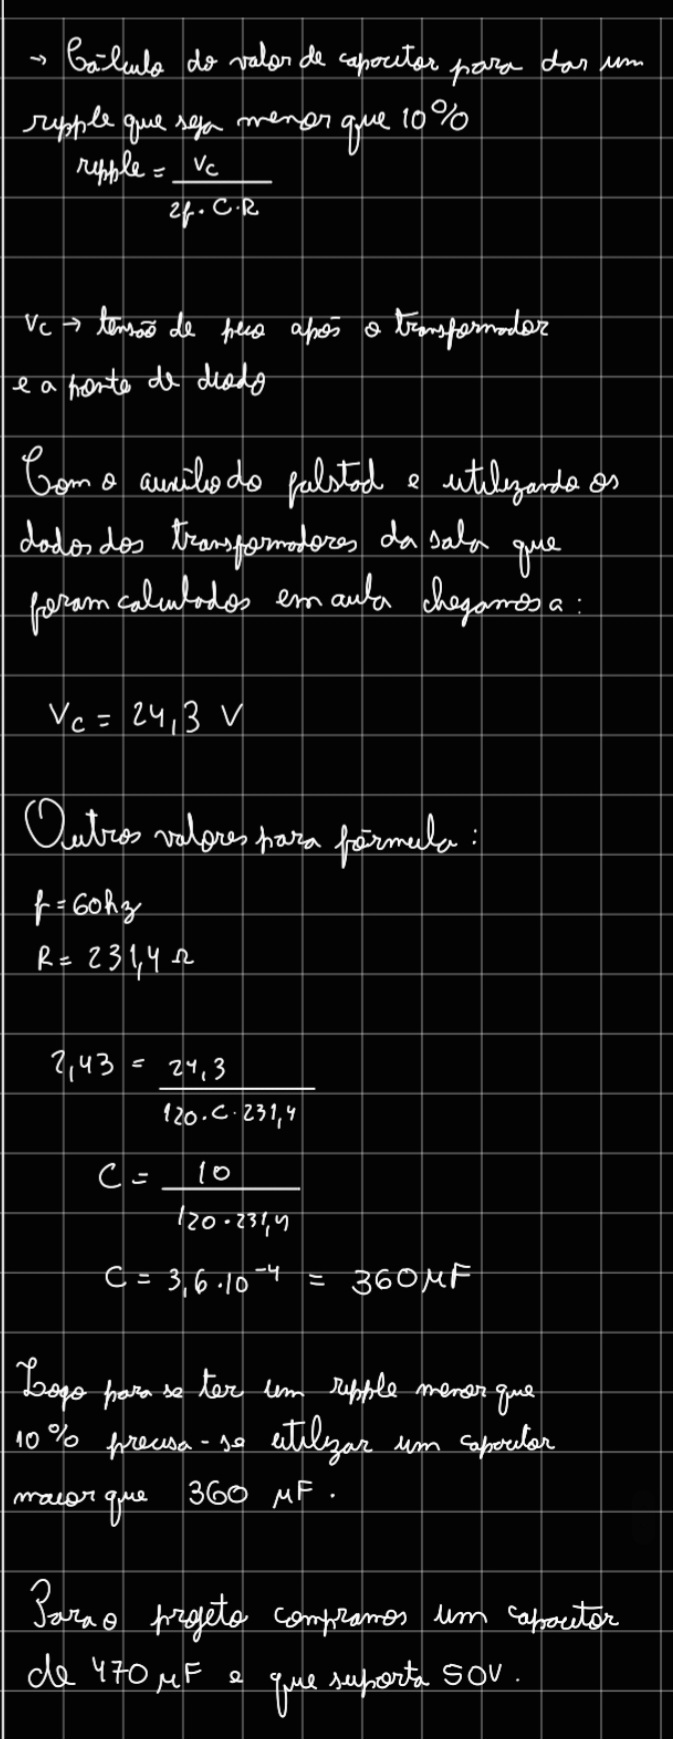 → Cálculo do valor de capacitor para dar um
ripple que seja menor que 10%
ripple = Vc
2f . C.R
Vc → tensão de pico após o transformador
e a ponte de diodo
Com o auxílio do falstad e utilizando os
dados dos transformadores da sala que
foram calculados em aula chegamos a :
Vc = 24,3 V
Outros valores para fórmula :
f = 60hz
R = 231,4 Ω
2,43 = 24,3
120.C.231,4
C = 10
120.231,4
C = 3,6.10⁻⁴ = 360μF
Logo para se ter um ripple menor que
10% precisa-se utilizar um capacitor
maior que 360 μF .
Para o projeto compramos um capacitor
de 470 μF e que suporta 50V .